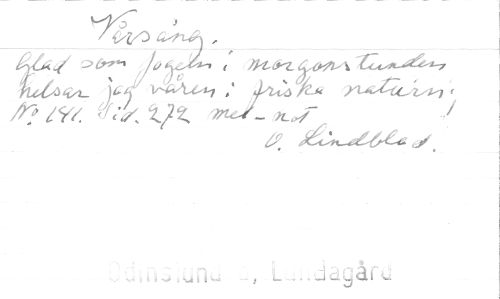 Vårsång.
Glad som fogeln i morgonstunden
helsar jag våren i friska naturn;
No 141. Sid. 272 mel-not
O. Lindblad.
Odinslund o, Lundagård